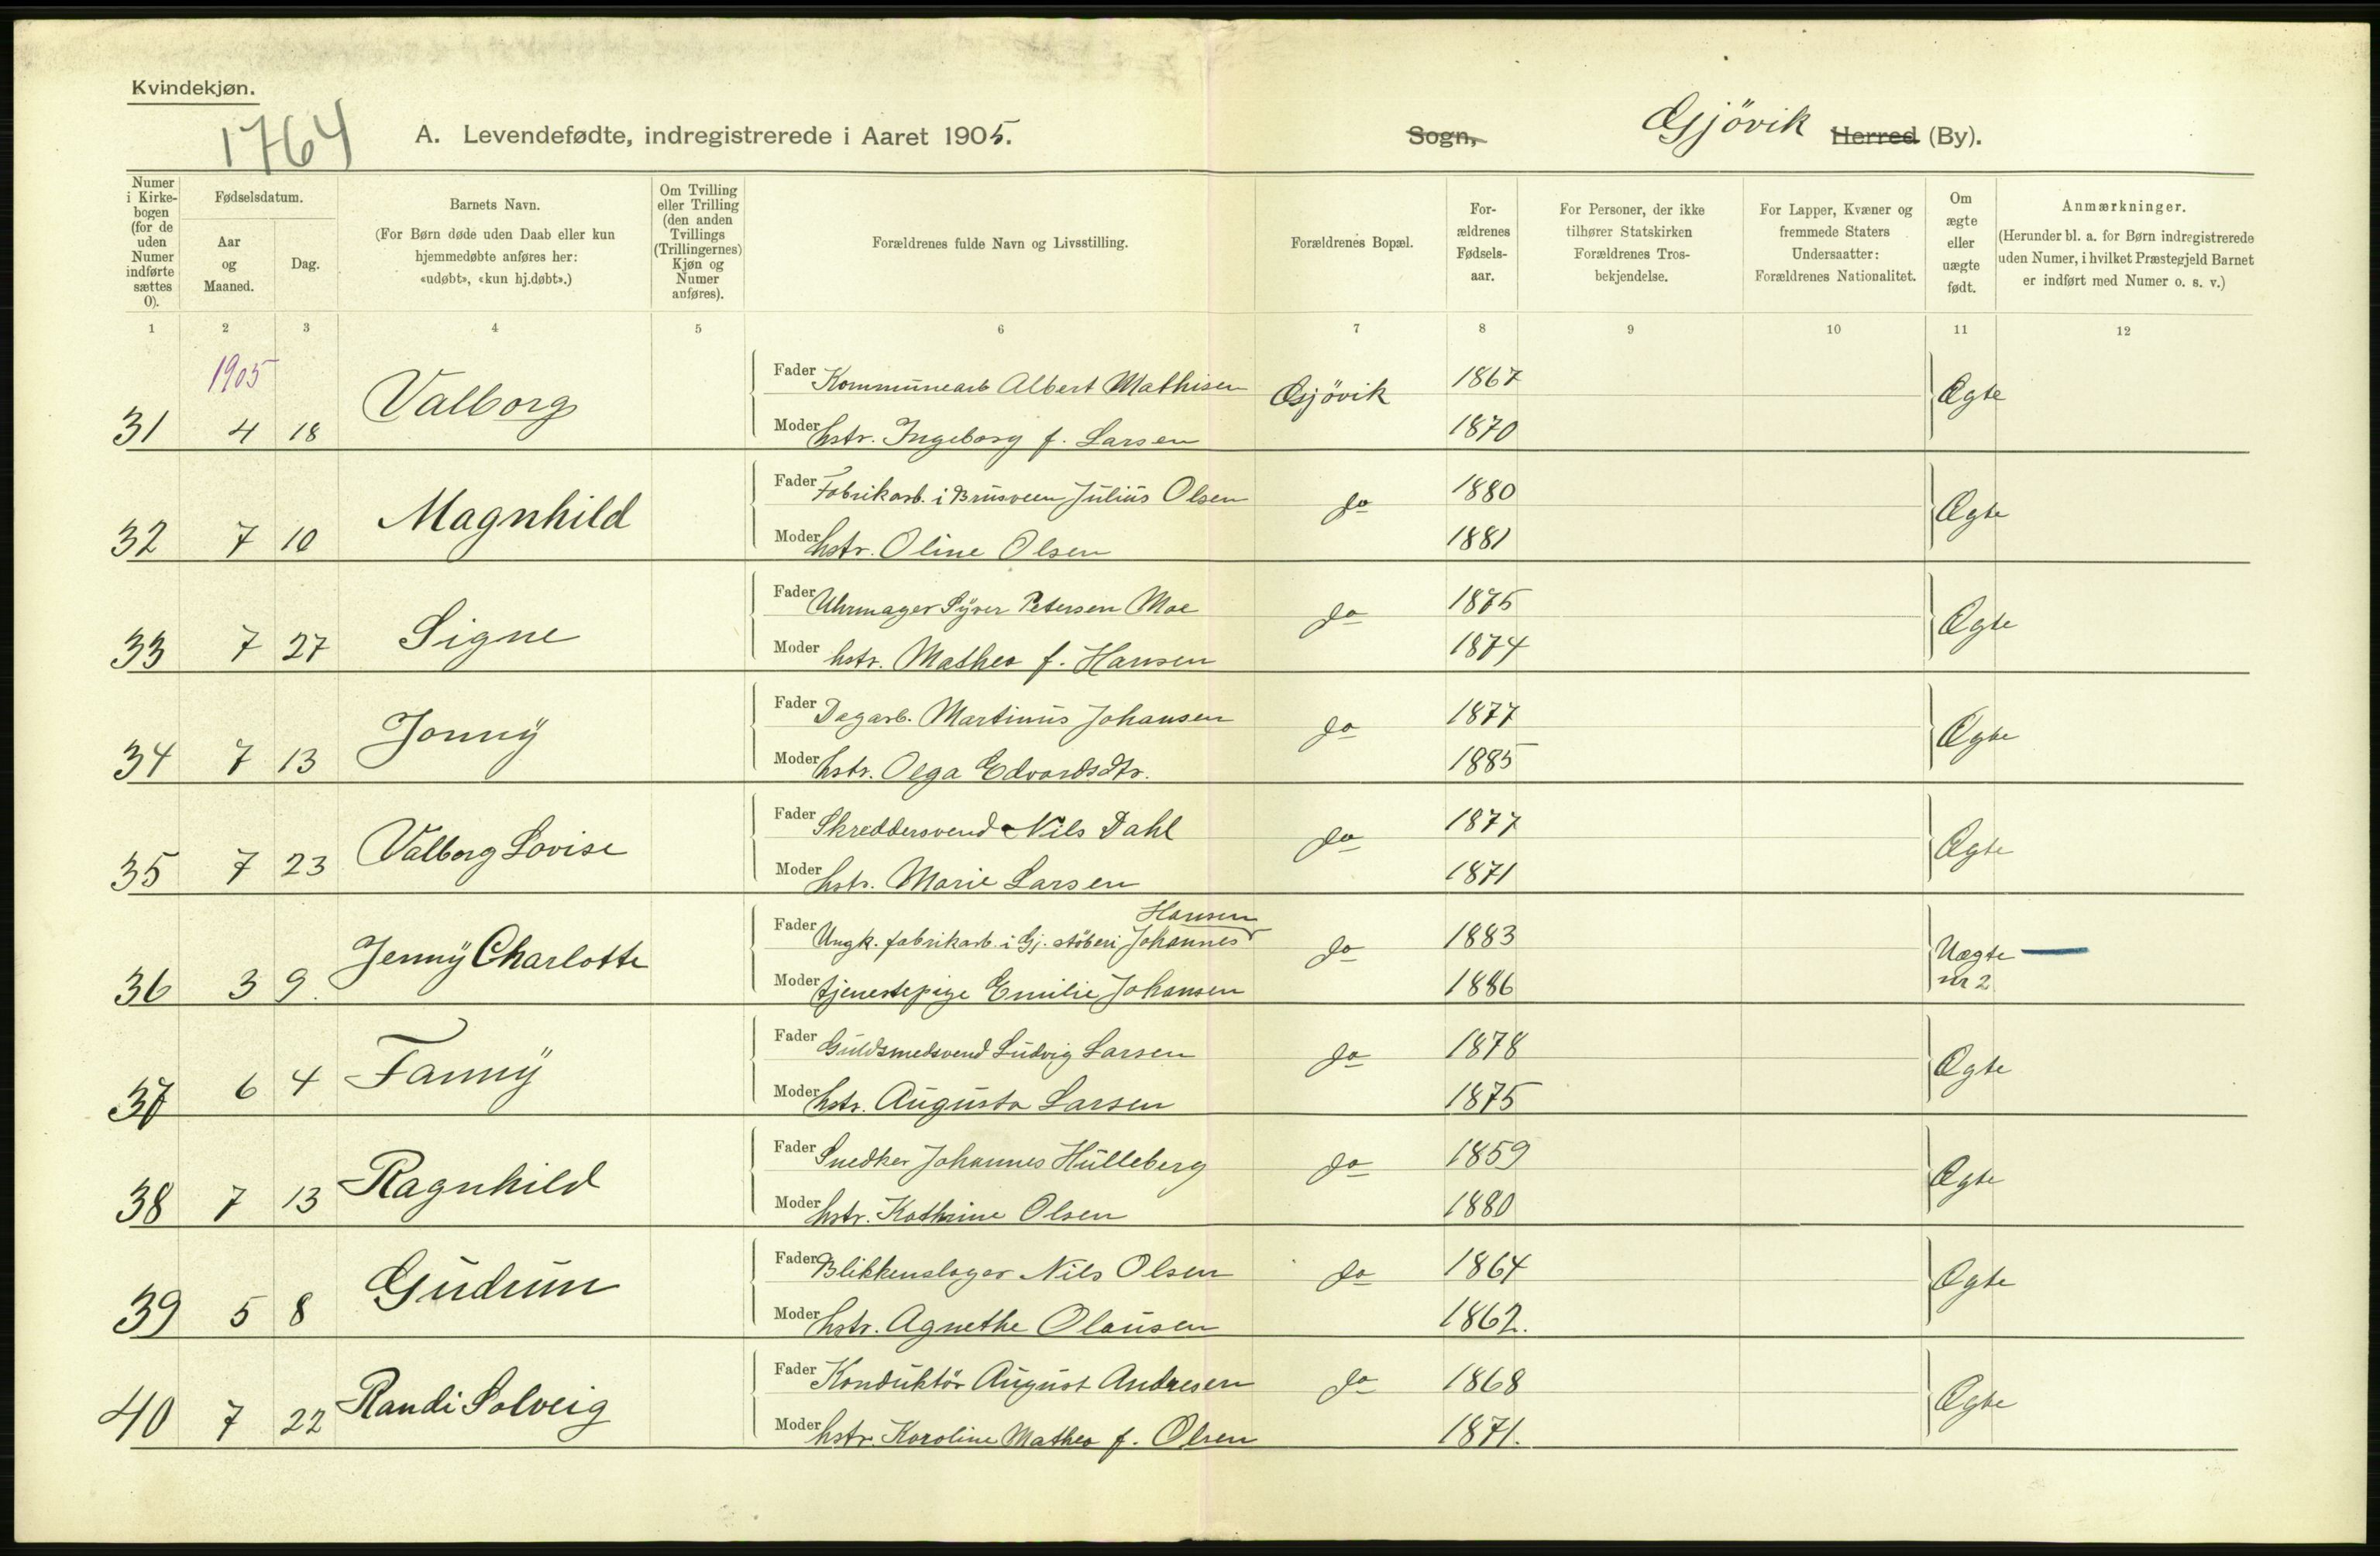 Kvindekjøn.
1764
A. Levendefødte, indregistrerede i Aaret 1905.
Sogn, Gjövik Herred (By).
Numer i Kirkebogen (for de uden Numer indførte sættes 0).
Fødselsdatum.
Aar og Maaned.
Dag.
Barnets Navn.
(For Børn døde uden Daab eller kun hjemmedøbte anføres her: «udøbt», «kun hj.døbt».)
Om Tvilling eller Trilling (den anden Tvillings (Trillingernes) Kjøn og Numer anføres).
Forældrenes fulde Navn og Livsstilling.
Forældrenes Bopæl.
Forældrenes Fødselsaar.
For Personer, der ikke tilhører Statskirken Forældrenes Trosbekjendelse.
For Lapper, Kvæner og fremmede Staters Undersaatter: Forældrenes Nationalitet.
Om ægte eller uægte født.
Anmærkninger.
(Herunder bl. a. for Børn indregistrerede uden Numer, i hvilket Præstegjeld Barnet er indført med Numer o. s. v.)
1 2 3 4 5 6 7 8 9 10 11 12
1905
31 4 18 Valborg Fader Kommunearb Albert Mathisen Gjövik 1867 Ægte
Moder hstr. Ingeborg f. Larsen 1870
32 7 10 Magnhild Fader Fabrikarb. i Brusveen Julius Olsen do 1880 Ægte
Moder hstr. Oline Olsen 1881
33 7 27 Signe Fader Uhrmager Syver Petersen Moe do 1875 Ægte
Moder hstr. Mathea f. Hansen 1874
34 7 13 Jonny Fader Dagarb. Martinus Johansen do 1877 Ægte
Moder hstr. Olga Edvardsdtr. 1885
35 7 23 Valborg Lovise Fader Skreddersvend Nils Dahl do 1877 Ægte
Moder hstr. Marie Larsen 1871
36 3 9. Jenny Charlotte Fader Ungk. fabrikarb. i Gj. støberi Johannes Hansen do 1883 Uægte —
Moder tjenestepige Emilie Johansen 1886 nr 2
37 6 4 Fanny Fader Guldsmedsvend Ludvig Larsen do 1878 Ægte
Moder hstr. Augusta Larsen 1875
38 7 13 Ragnhild Fader Snedker Johannes Hulleberg do 1859 Ægte
Moder hstr. Kathrine Olsen 1880
39 5 8 Gudrun Fader Blikkenslager Nils Olsen do 1864 Ægte
Moder hstr. Agnethe Olausen 1862.
40 7 22 Randi Solveig Fader Konduktör August Andresen do 1868 Ægte
Moder hstr. Karoline Mathea f. Olsen 1871.